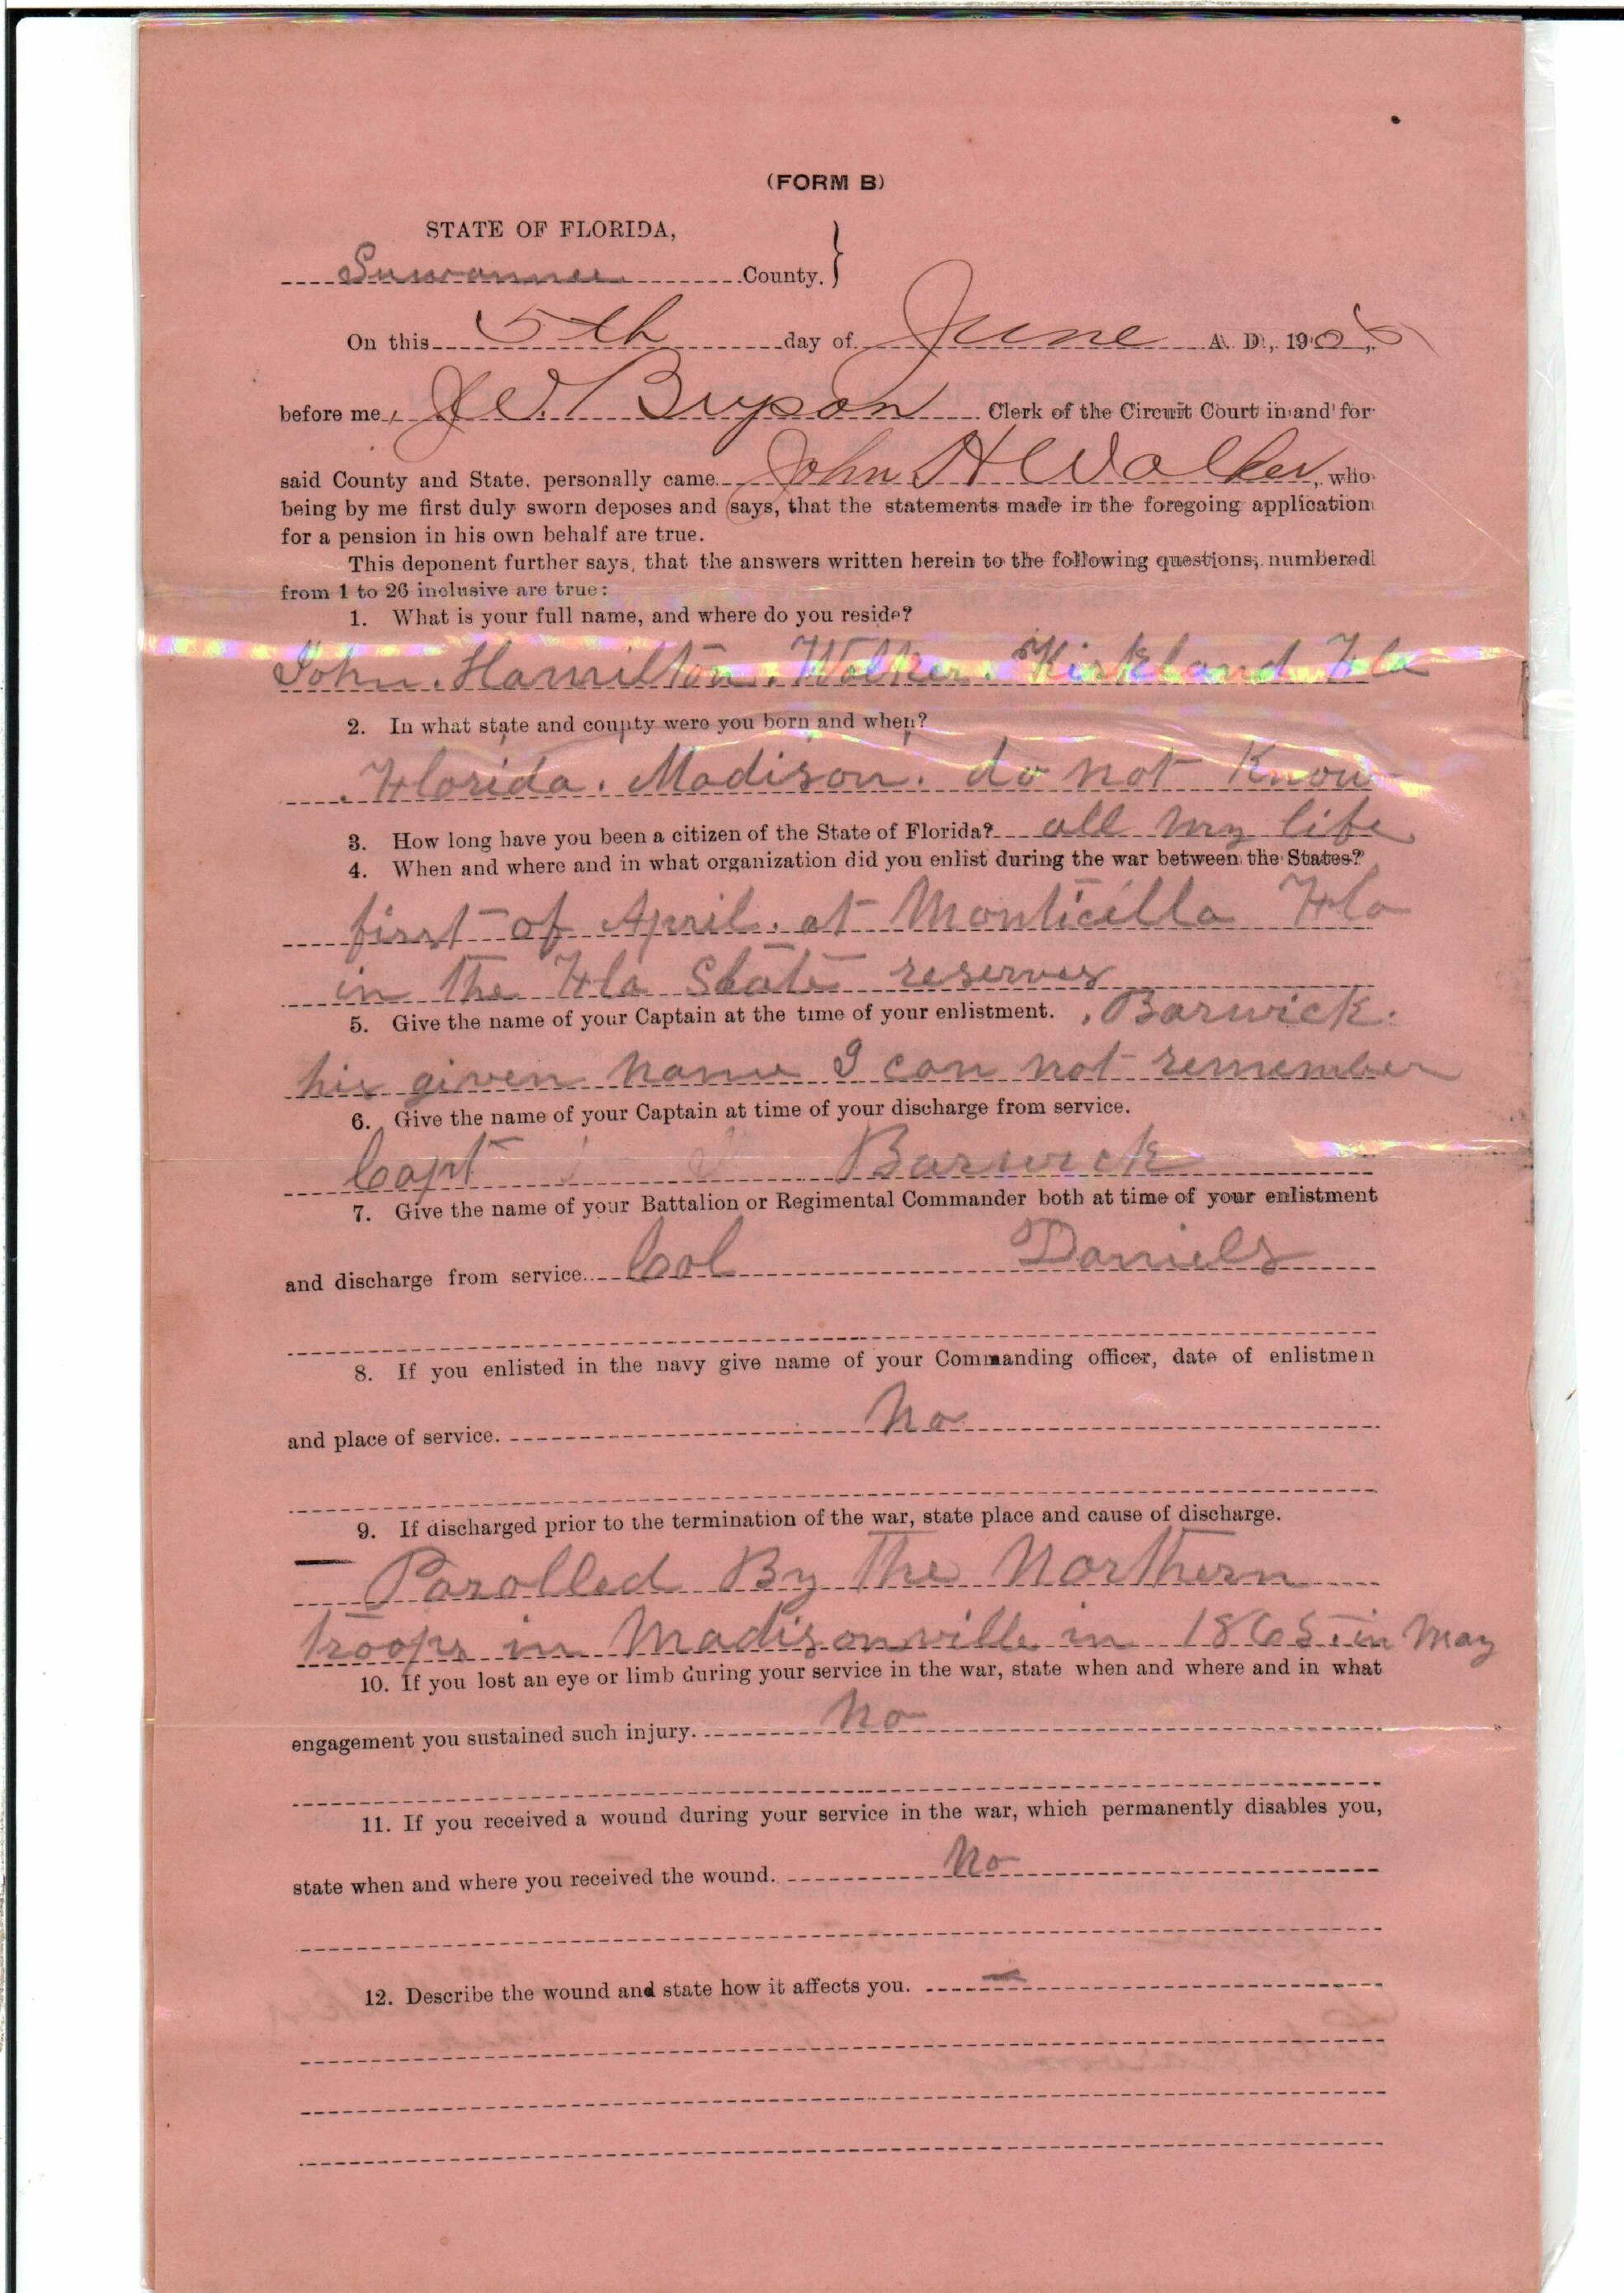 (FORM B)
STATE OF FLORIDA,
Suwannee County.}
On this 5th day of June A. D., 190
before me, J W. Bryson Clerk of the Circuit Court in and for
said County and State, personally came John H Walker, who
being by me first duly sworn deposes and says, that the statements made in the foregoing application
for a pension in his own behalf are true.
This deponent further says, that the answers written herein to the following questions, numbered
from 1 to 26 inclusive are true:
1. What is your full name, and where do you reside?
John. Hamilton. Walker. Kirkland Fla
2. In what state and county were you born and when?
Florida. Madison. do not Know
3. How long have you been a citizen of the State of Florida? all my life
4. When and where and in what organization did you enlist during the war between the States?
first of April. at Monticello Fla
in the Fla State reserves
5. Give the name of your Captain at the time of your enlistment. Barwick.
his given name I can not remember
6. Give the name of your Captain at time of your discharge from service.
Capt Barwick
7. Give the name of your Battalion or Regimental Commander both at time of your enlistment
and discharge from service. Col Daniels
8. If you enlisted in the navy give name of your Commanding officer, date of enlistmen
and place of service. No
9. If discharged prior to the termination of the war, state place and cause of discharge.
Parolled By The Northern
troops in Madisonville in 1865. in May
10. If you lost an eye or limb during your service in the war, state when and where and in what
engagement you sustained such injury. No
11. If you received a wound during your service in the war, which permanently disables you,
state when and where you received the wound. No
12. Describe the wound and state how it affects you. —